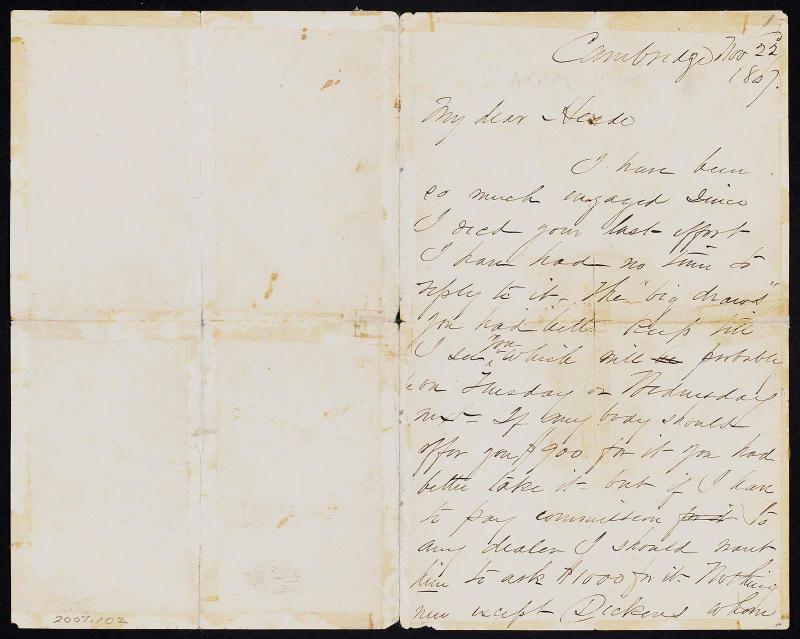 Cambridge Nov 22
1867.
My dear Heade
I have been
so much engaged since
I recd your last effort
I have had no time to
reply to it. The "big draws"
you had better keep till
I see you which will probably
be on Tuesday or Wednesday
next - If any body should
offer you $900 for it you had
better take it - but if I have
to pay commission for it to
any dealer I should want
him to ask $1000 for it - Nothing
new except Dickens whom
2007.102